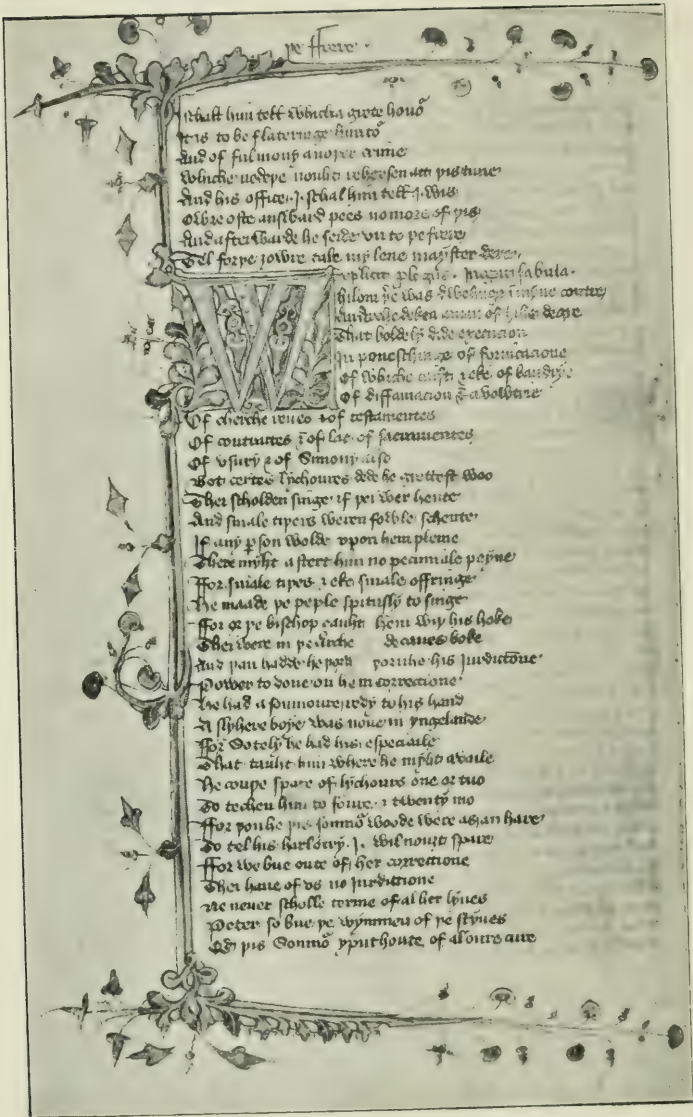 þe ffrere
I schall him tell whicha grete honoͬ
It is to be flateringe limitoͬ
And of ful mony anoþer crime
Whiche nedeþe nouht rehersen att þis time
And his office . I . schal him tell . I . wis
Owre oste answard pees no more of þis
And afterwarde he seide vn to þe frere
Tel forþe ȝowre tale my leue mayster dere
Explicit plogꝰ . Incipit fabula .
Whilom þer was dwelinge in myne contre
An erche deken a man of hihe degre
That boldely dide execucion
In poneschinge of fornicacione
Of whiche craft & eke of baudrye
Of diffamacion & avowtrie
Of cherche reues & of testamentes
Of contractes & of lac of sacramentes
Of vsury & of Simony also
Bot certes lychoures dede he grettest woo
Thei scholden singe if þei wer hente
And smale tiþers weren fowle schente
If any pson wolde vpon hem pleine
There myht astert him no pecuniale peyne
Ffor smale tiþes & eke smale offringe
He maade þe peple spitusly to singe
Ffor or þe bischop cauht hem wiþ his hoke
Thei were in þe erche decanes boke
And þan hadde he þorh his iurdictione
Power to done on hem correctione
He had a somnoure redy to his hand
A slyhere boye was none in yngelande
Ffor Sotely he had his especiale
That tauht him where he myht availe
He couþe spare of lychours one or tuo
To techen him to foure & twenty mo
Ffor þouhe þis somnoͬ woode were as an hare
To tel his harlotry . I . wil nouht spare
Ffor we bue oute of her correctione
Thei haue of vs no iurdictione
Ne neuer scholle terme of al her lyues
Peter so bue þe wymmen of þe styues
Qd þis Somnoͬ yput houte of al oure cure